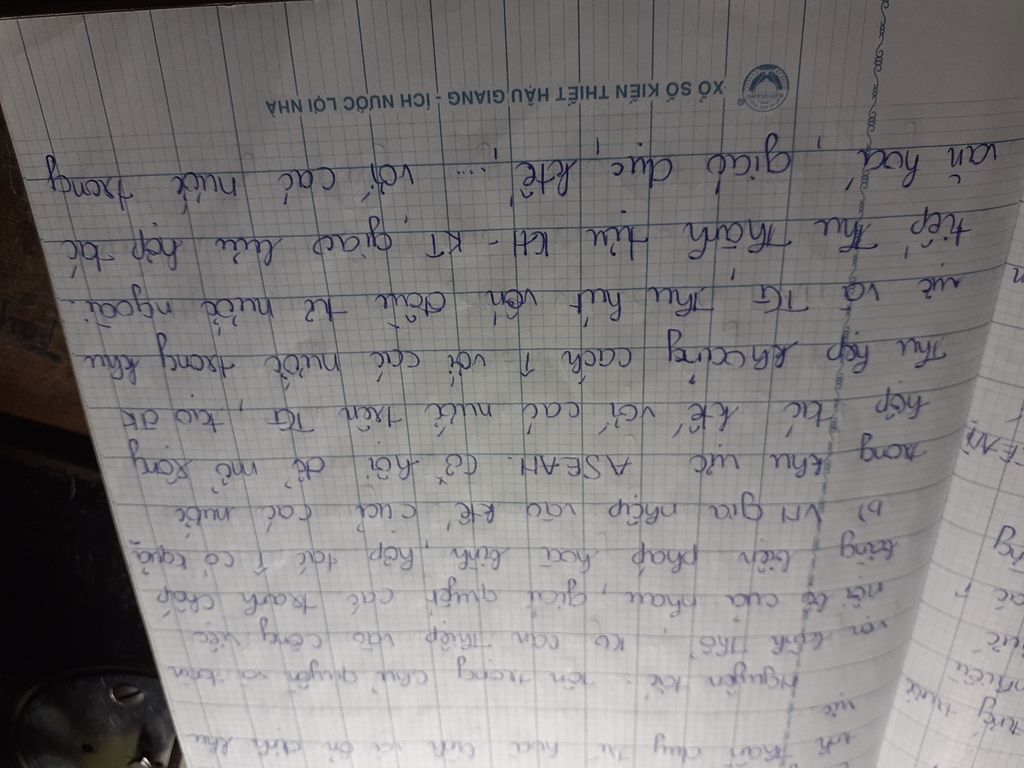 thần duy trì hòa bình và ổn định khu
vực
Nguyên tắc: tôn trọng chủ quyền và toàn
vẹn lãnh thổ, ko can thiệp vào công việc
nội bộ của nhau, giải quyết các tranh chấp
bằng biện pháp hòa bình, hợp tác ↑ có kquả
b) VN gia nhập vào ktế các nước
trong khu vực ASEAN. Cơ hội để mở rộng
hợp tác ktế với các nước trên TG, tạo đk
Thu hẹp khoảng cách ↑ với các nước trong khu
vực và TG, Thu hút vốn đầu tư nước ngoài.
tiếp thu thành tựu KH - KT, giao lưu hợp tác
văn hoá, giáo dục, ktế, ... với các nước trong
XỔ SỐ KIẾN THIẾT HẬU GIANG - ÍCH NƯỚC LỢI NHÀ